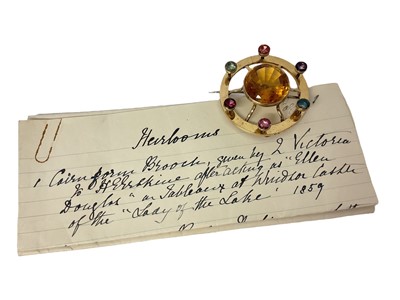 Heirlooms
1 Cairngorm Brooch, given by Q Victoria
to Erskine after acting as "Ellen
Douglas" in Tableaux at Windsor Castle
of the "Lady of the Lake 1859